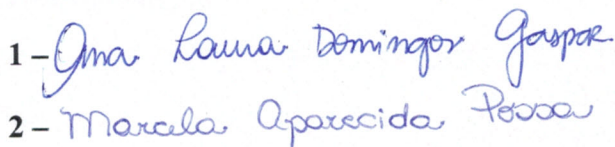 1 – Ana Laura Domingos Gaspar
2 – Marcela Aparecida Possa